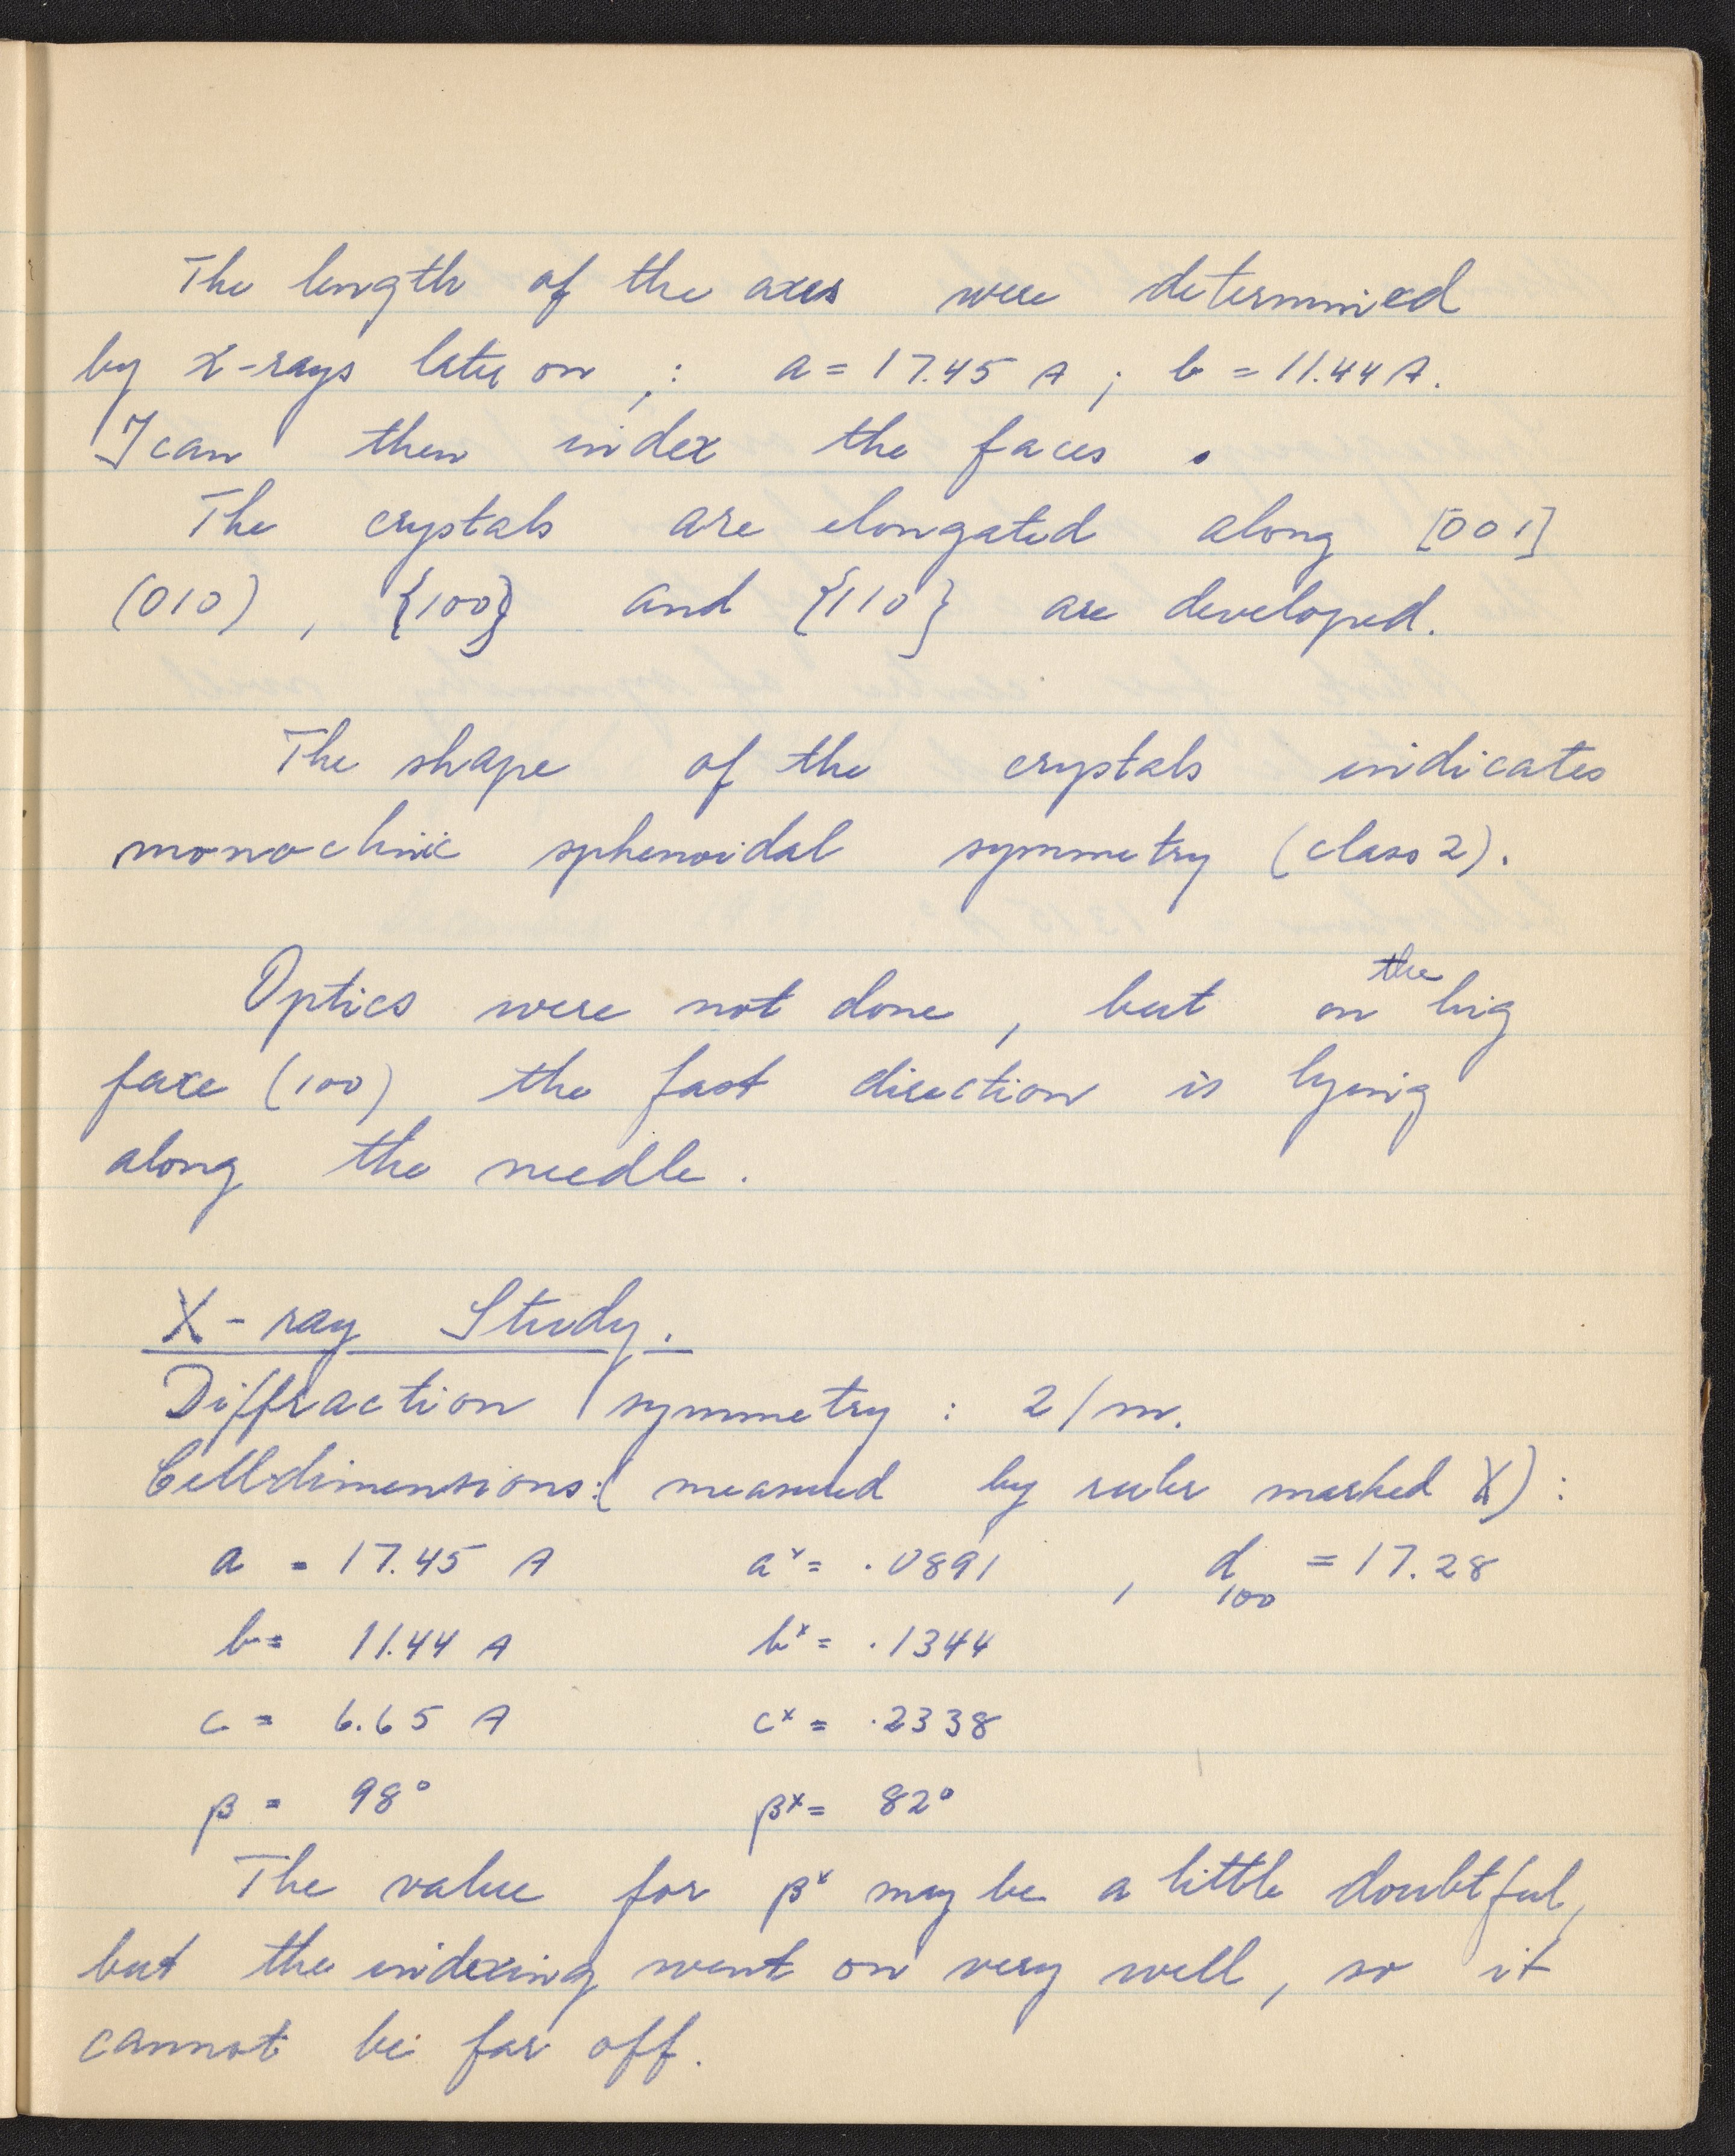 The length of the axes were determined
by X-rays later on , : a = 17.45 A ; b = 11.44 A.
I can then index the faces .
The crystals are elongated along [001]
(010) , {100} and {110} are developed.
The shape of the crystals indicates
monoclinic sphenoidal symmetry (class 2).
Optics were not done , but on the big
face (100) the fast direction is lying
along the needle .
X-ray Study.
Diffraction symmetry : 2/m.
Celldimensions: ( measured by ruler marked X) :
a = 17.45 A a* = .0891 , d100 = 17.28
b = 11.44 A b* = .1344
c = 6.65 A c* = .2338
β = 98° β* = 82°
The value for β* may be a little doubtful,
but the indexing went on very well, so it
cannot be far off.